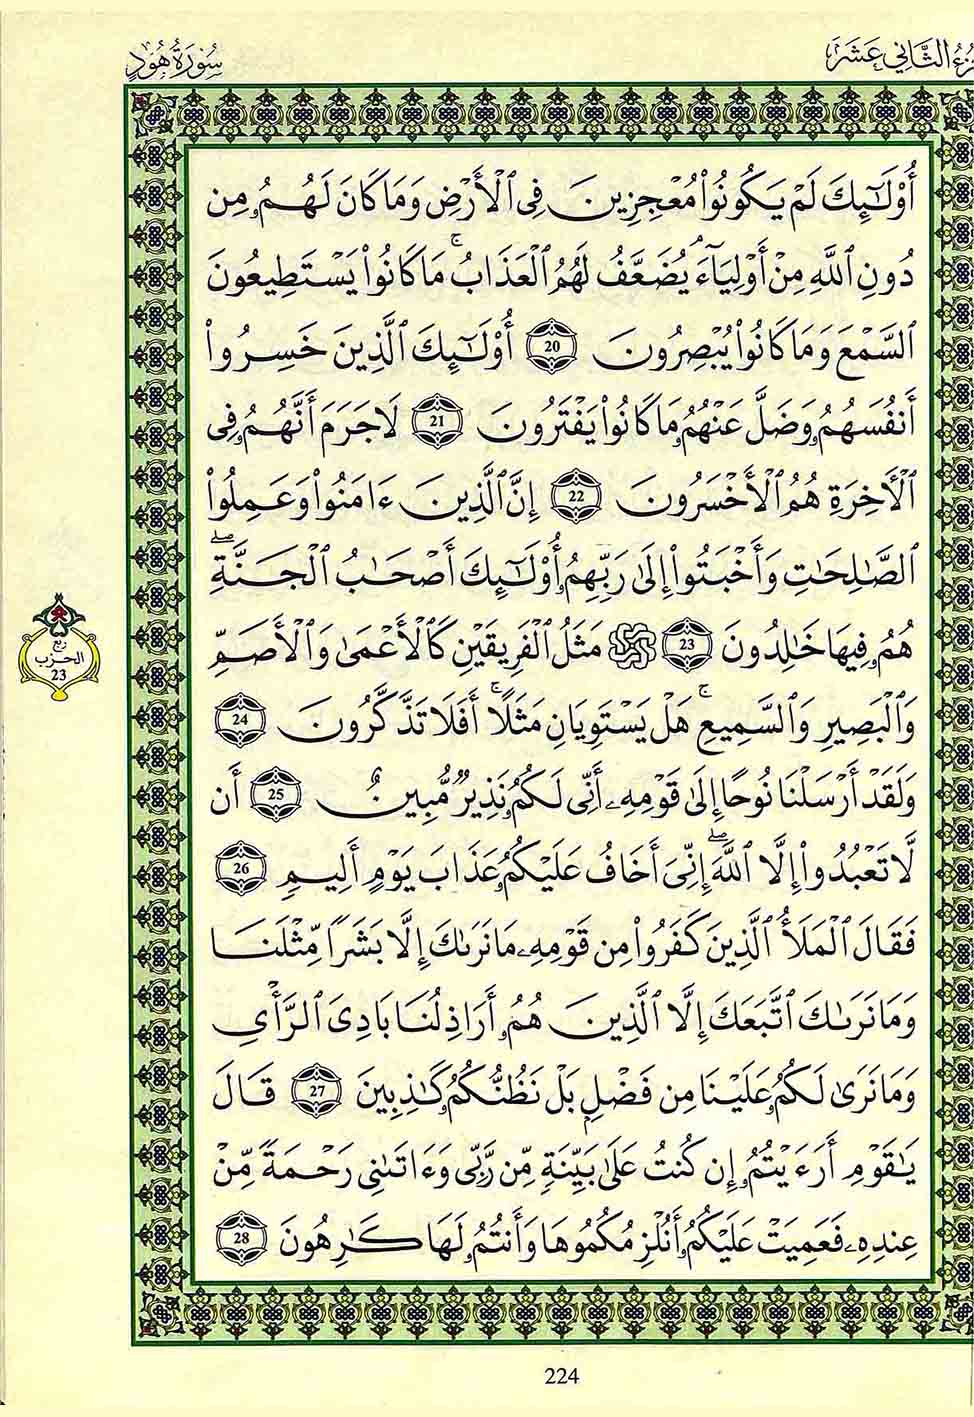 سُورَةُ هُودٍ
الثَّانِي عَشَرَ
أُوْلَٰٓئِكَ لَمْ يَكُونُواْ مُعْجِزِينَ فِى اِ۬لْأَرْضِ وَمَا كَانَ لَهُمُۥ مِن
دُونِ اِ۬للَّهِ مِنْ أَوْلِيَآءَۘ يُضَعَّفُ لَهُمُ اُ۬لْعَذَابُۚ مَا كَانُواْ يَسْتَطِيعُونَ
اَ۬لسَّمْعَ وَمَا كَانُواْ يُبْصِرُونَ 20 أُوْلَٰٓئِكَ اَ۬لَّذِينَ خَسِرُواْ
أَنفُسَهُمُۥ وَضَلَّ عَنْهُمُۥ مَا كَانُواْ يَفْتَرُونَ 21 لَا جَرَمَ أَنَّهُمُۥ فِى
اِ۬لْأٓخِرَةِ هُمُ اُ۬لْأَخْسَرُونَ 22 إِنَّ اَ۬لَّذِينَ ءَامَنُواْ وَعَمِلُواْ
اُ۬لصَّٰلِحَٰتِ وَأَخْبَتُواْ إِلَىٰ رَبِّهِمُۥ أُوْلَٰٓئِكَ أَصْحَٰبُ اُ۬لْجَنَّةِۖ
هُمُۥ فِيهَا خَٰلِدُونَ 23 ۞ مَثَلُ اُ۬لْفَرِيقَيْنِ كَالْأَعْمَىٰ وَالْأَصَمِّ
وَالْبَصِيرِ وَالسَّمِيعِۚ هَلْ يَسْتَوِيَانِ مَثَلًاۚ أَفَلَا تَذَّكَّرُونَ 24
وَلَقَدْ أَرْسَلْنَا نُوحًا إِلَىٰ قَوْمِهِۦ أَنِّى لَكُمُۥ نَذِيرٌ مُّبِينٌ 25 أَن
لَّا تَعْبُدُواْ إِلَّا اَ۬للَّهَۖ إِنِّىَ أَخَافُ عَلَيْكُمُۥ عَذَابَ يَوْمٍ أَلِيمٍ 26
فَقَالَ اَ۬لْمَلَأُ اُ۬لَّذِينَ كَفَرُواْ مِن قَوْمِهِۦ مَا نَرَىٰكَ إِلَّا بَشَرًا مِّثْلَنَا
وَمَا نَرَىٰكَ اَ۪تَّبَعَكَ إِلَّا اَ۬لَّذِينَ هُمُۥ أَرَاذِلُنَا بَادِىَ اَ۬لرَّأْىِ
وَمَا نَرَىٰ لَكُمُۥ عَلَيْنَا مِن فَضْلٍ بَلْ نَظُنُّكُمُۥ كَٰذِبِينَ 27 قَالَ
يَٰقَوْمِ أَرَءَيْتُمُۥ إِن كُنتُ عَلَىٰ بَيِّنَةٍ مِّن رَّبِّى وَءَاتَىٰنِى رَحْمَةً مِّنْ
عِندِهِۦ فَعَمِيَتْ عَلَيْكُمُۥ أَنُلْزِمُكُمُوهَا وَأَنتُمُۥ لَهَا كَٰرِهُونَ 28
ربع
الحزب
23
224